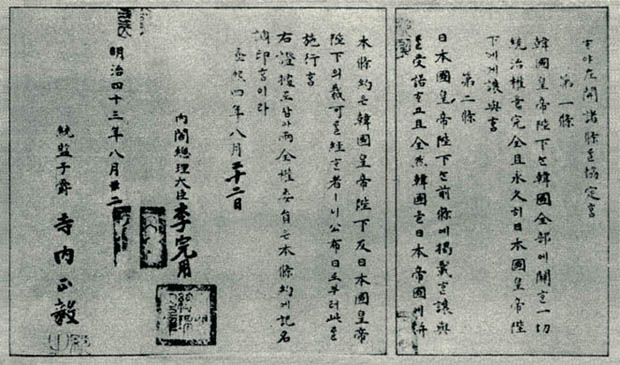 ᄒᆞ야左開諸條를協定홈
第一條
韓國皇帝陛下는韓國全部에關ᄒᆞᆫ一切
統治權을完全且永久히日本國皇帝陛
下에게讓與홈
第二條
日本國皇帝陛下는前條에揭載ᄒᆞᆫ讓與
를受諾ᄒᆞ고且全然韓國을日本帝國에倂
本條約은韓國皇帝陛下及日本國皇帝
陛下의裁可를經ᄒᆞᆫ者ㅣ니公布日로부터此를
施行홈
右證據로삼아兩全權委員은本條約에記名
調印홈이라
隆熙四年八月二十二日
內閣總理大臣李完用
明治四十三年八月廿二
統監子爵寺內正毅